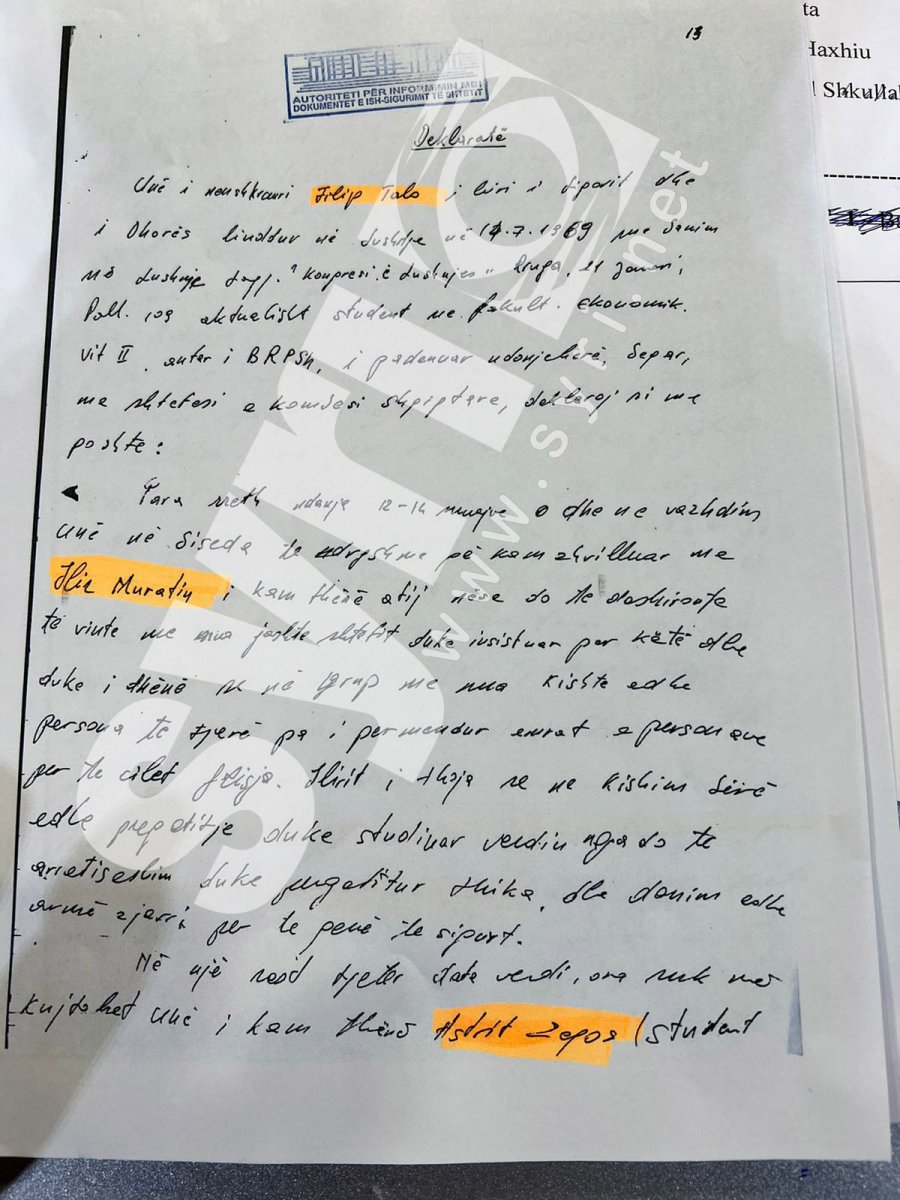 13
AUTORITETI PËR INFORMIMIN MBI
DOKUMENTET E ISH-SIGURIMIT TË SHTETIT
Deklaratë
Unë i nënshkruari Filip Talo i biri i Sipovit dhe
i Dhorës lindur në Lushnje në 14.7.1969 me banim
në Lushnje lagj. "Kongresi i Lushnjes" Rruga, 11 Janari,
Pall. 109 aktualisht student në fakult. ekonomik.
vit II, antar i BRPSH, i padenuar ndonjeherë, beqar,
me shtetësi e kombësi shqiptare, deklaroj si me
poshtë:
Para rreth ndonja 12-14 muajve dhe ne vazhdim
unë në biseda te ndryshme që kam zhvilluar me
Ilir Muratin i kam thënë atij nëse do te deshironte
të vinte me mua jashte shtetit duke insistuar per këtë dhe
duke i thënë se në grup me mua kishte edhe
persona te tjerë pa i permendur emrat e personave
per te cilet flisja. Ilirit i thoja se ne kishim bërë
edhe pregatitje duke studiuar vendin nga do te
arratiseshim duke pergatitur thika, dhe donim edhe
armë zjarri, per te qenë te sigurt.
Në një rast tjeter data vendi, ora nuk më
kujtohet unë i kam thënë Astrit Zepos (student
syri
www.syri.net
ta
Haxhiu